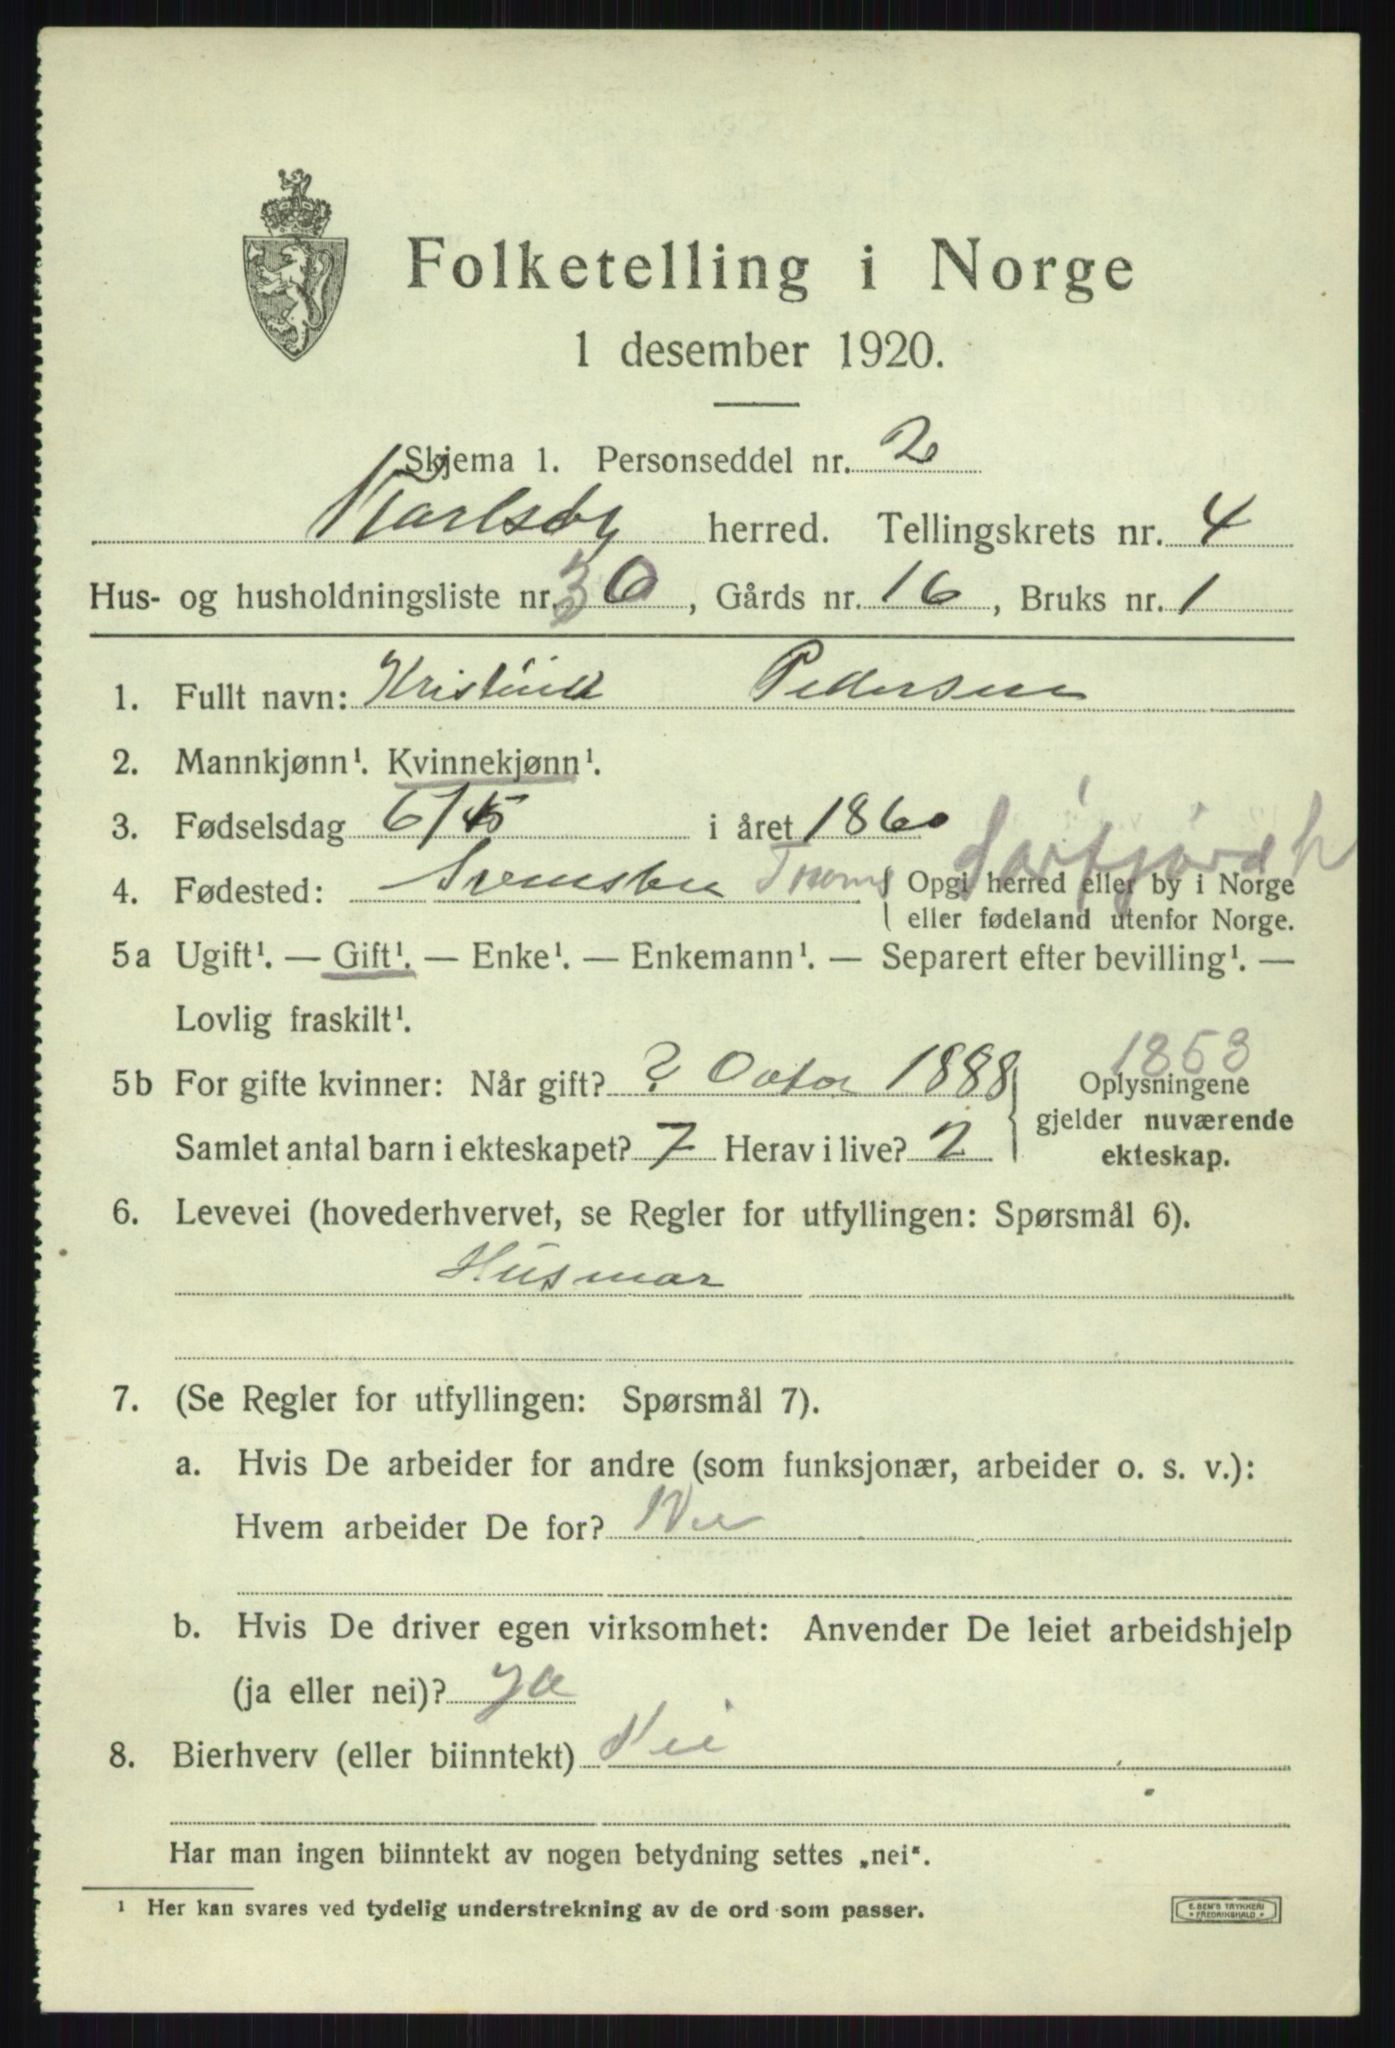 Folketelling i Norge
1 desember 1920.
Skjema 1. Personseddel nr. 2
Karlsøy herred. Tellingskrets nr. 4
Hus- og husholdningsliste nr. 30, Gårds nr. 16, Bruks nr. 1
1. Fullt navn: Pedersen
2. Mannkjønn¹. Kvinnekjønn¹.
3. Fødselsdag 6/5 i året 1860
4. Fødested: Troms Opgi herred eller by i Norge
eller fødeland utenfor Norge.
5a Ugift¹. — Gift¹. — Enke¹. — Enkemann¹. — Separert efter bevilling¹. —
Lovlig fraskilt¹.
1853
5b For gifte kvinner: Når gift? ? 1888 Oplysningene
gjelder nuværende
Samlet antal barn i ekteskapet? 7 Herav i live? 2 ekteskap.
6. Levevei (hovederhvervet, se Regler for utfyllingen: Spørsmål 6).
Husmor
7. (Se Regler for utfyllingen: Spørsmål 7).
a. Hvis De arbeider for andre (som funksjonær, arbeider o. s. v.):
Hvem arbeider De for? Nei
b. Hvis De driver egen virksomhet: Anvender De leiet arbeidshjelp
(ja eller nei)? Ja
8. Bierhverv (eller biinntekt) Nei
Har man ingen biinntekt av nogen betydning settes „nei".
¹ Her kan svares ved tydelig understrekning av de ord som passer.
E. SEM'S TRYKKERI
* FREDRIKSHALD *